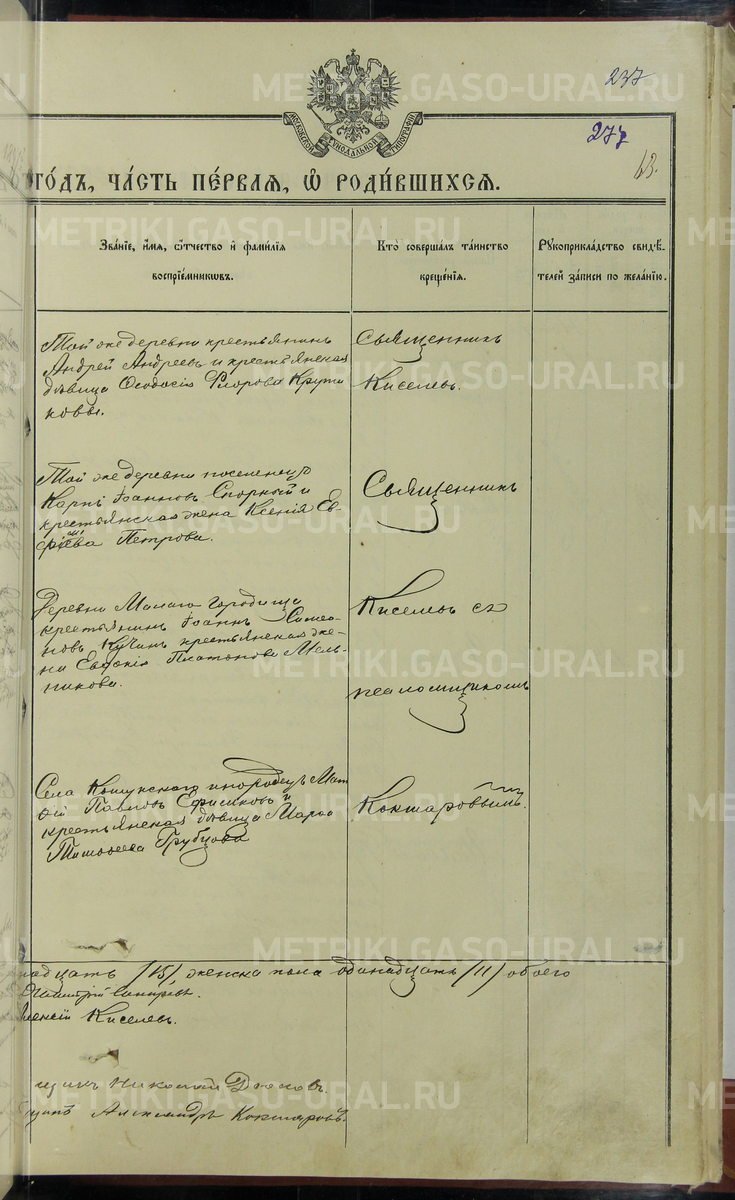 237
277
13.
МОСКОВСКОЙ СѴНОДАЛЬНОЙ ТИПОГРАФІИ
ГО́ДЪ, ЧА́СТЬ ПЕ́РВАЯ, Ѡ РОДИ́ВШИХСЯ.
Зва́ніе, и́мя, ѻ́тчество и҆ фами́лія
воспріе́мникѡвъ.
Кто̀ соверша́лъ та́инство
креще́нія.
Рꙋкоприкла́дство свидѣ́-
телей за́писи по жела́нію.
Той же деревни крестьянинъ
Андрей Андреевъ и крестьянская
дѣвица Ѳеодосія Флорова Крути
ковы.
Священникъ
Киселевъ.
Той же деревни поселенецъ
Карпъ Іоанновъ Спорный и
крестьянская жена Ксенія Ев
Петрова.
Священникъ
Деревни Малаго Городища
крестьянинъ Іоаннъ Симео-
новъ Кучинъ крестьянская же-
на Евдокія Платонова Мель-
никова.
Киселевъ съ
псаломщикомъ
Села Кошукскаго инородецъ Мат
ѳій Павловъ и
крестьянская дѣвица Марѳа
Тимоѳеева Трубцова
Кокшаровымъ.
надцать /15/ женска пола одинадцать /11/ обоего
Димитрій
Алексій Киселевъ.
Николай
Александръ Кокшаровъ.
METRIKI.GASO-URAL.RU